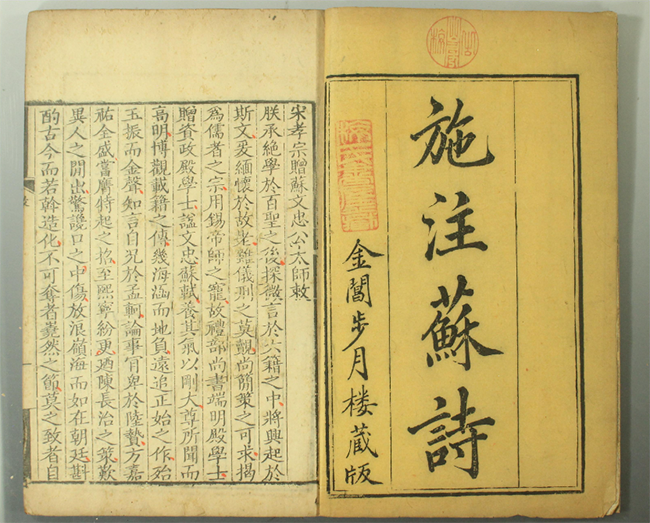 施注蘇詩
金閶步月楼蔵版
宋孝宗贈蘇文忠公太師敕
朕承絕學於百聖之後探微言於六籍之中將興起於
斯文爰緬懷於故老雖儀刑之莫覿尚簡策之可求揭
爲儒者之宗用錫帝師之寵故禮部尚書端明殿學士
贈資政殿學士諡文忠蘇軾養其氣以剛大尊所聞而
高明博觀載籍之傳幾海涵而地負遠追正始之作殆
玉振而金聲知言自況於孟軻論事肎卑於陸贄方嘉
祐全盛嘗膺特起之招至熙寧紛更迺陳長治之策歎
異人之間出驚讒口之中傷放浪嶺海而如在朝廷斟
酌古今而若斡造化不可奪者嶤然之節莫之致者自